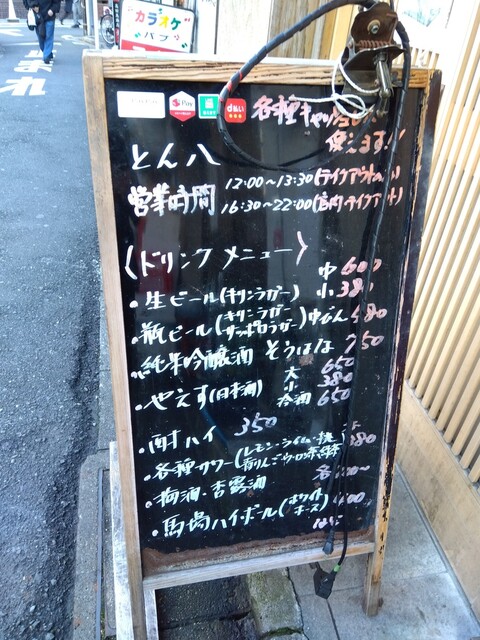 カラオケ
パブ
止まれ
Pay
d払い
各種キャッシュ
使えます!!
とん八
営業時間 12:00〜13:30(テイクアウト
16:30〜22:00(店内テイクアウト)
〈ドリンクメニュー〉
・生ビール(キリンラガー) 中600
小380
・瓶ビール(キリンラガー サッポロラガー)中びん 480
・純米吟醸酒 そうはな 750
・やえす(日本酒) 大 650
小 380
冷酒 650
・酎ハイ 350
・各種サワー(レモン・ライム・桃 380
青りんご・ウーロン茶・緑茶
・梅酒・杏露酒 各
・馬場ハイボール(ホワイトホース) 400